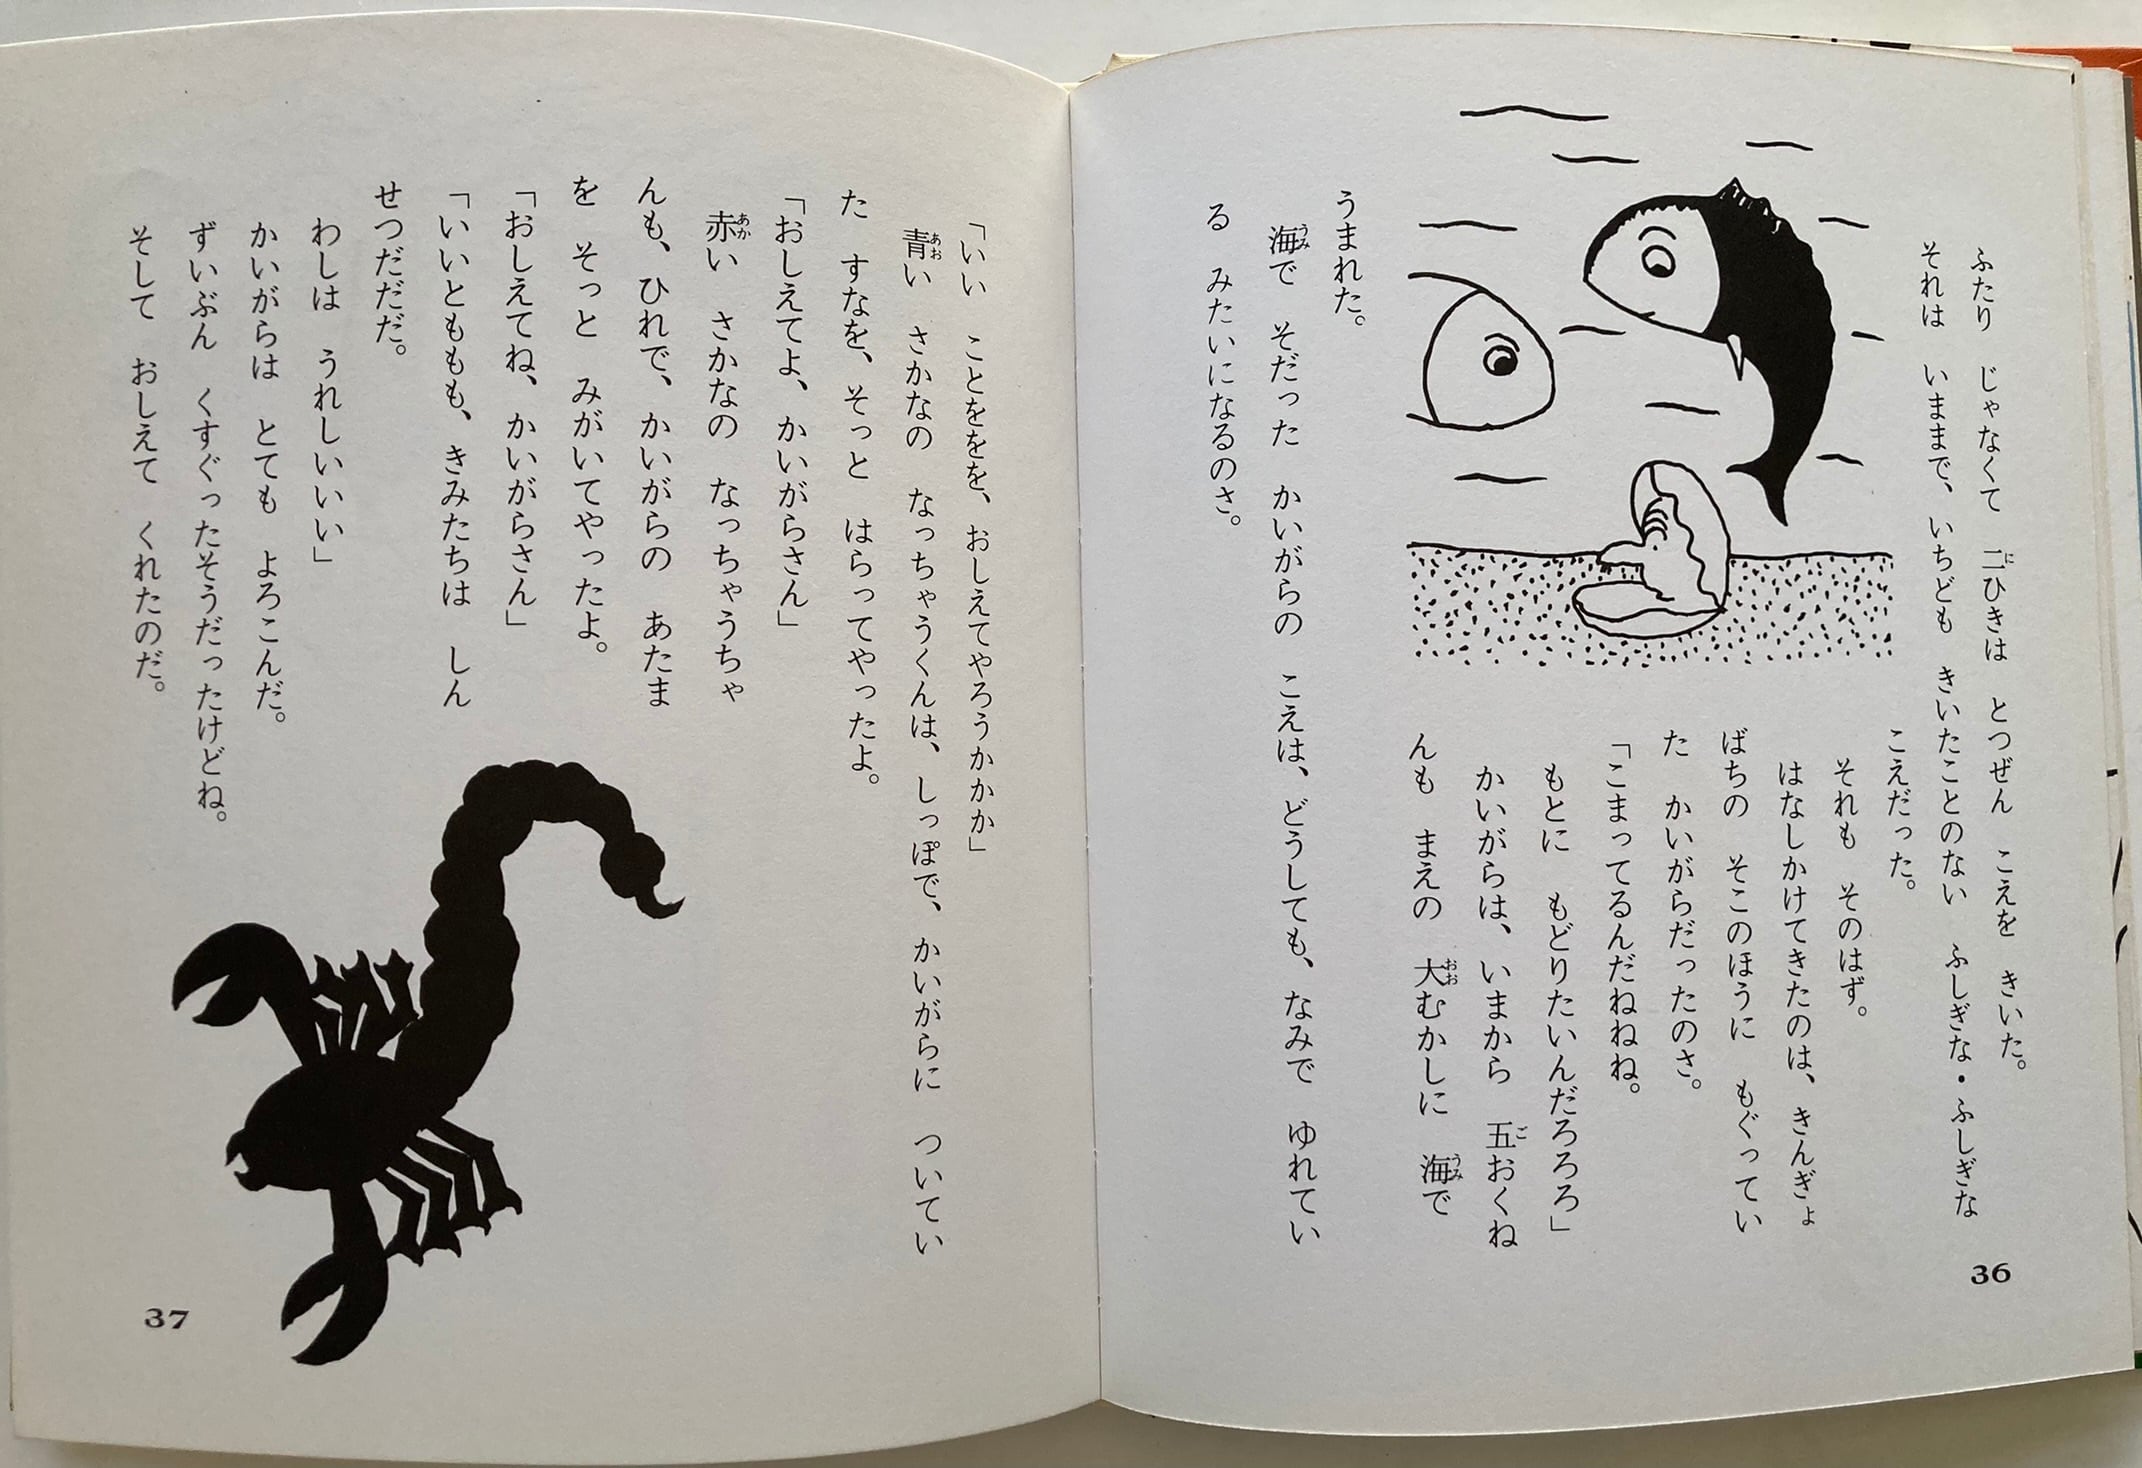 ふたり じゃなくて 二ひきは とつぜん こえを きいた。
それは いままで、いちども きいたことのない ふしぎな・ふしぎな
こえだった。
それも そのはず。
はなしかけてきたのは、きんぎょ
ばちの そこのほうに もぐってい
た かいがらだったのさ。
「こまってるんだねねね。
もとに もどりたいんだろろろ」
かいがらは、いまから 五おくね
んも まえの 大むかしに 海で
うまれた。
海で そだった かいがらの こえは、どうしても、なみで ゆれてい
る みたいになるのさ。
36
「いい ことををを、おしえてやろうかかか」
青い さかなの なっちゃうくんは、しっぽで、かいがらに ついてい
た すなを、そっと はらってやったよ。
「おしえてよ、かいがらさん」
赤い さかなの なっちゃうちゃ
んも、ひれで、かいがらの あたま
を そっと みがいてやったよ。
「おしえてね、かいがらさん」
「いいともももも、きみたちは しん
せつだだだ。
わしは うれしいいい」
かいがらは とても よろこんだ。
ずいぶん くすぐったそうだったけどね。
そして おしえて くれたのだ。
37